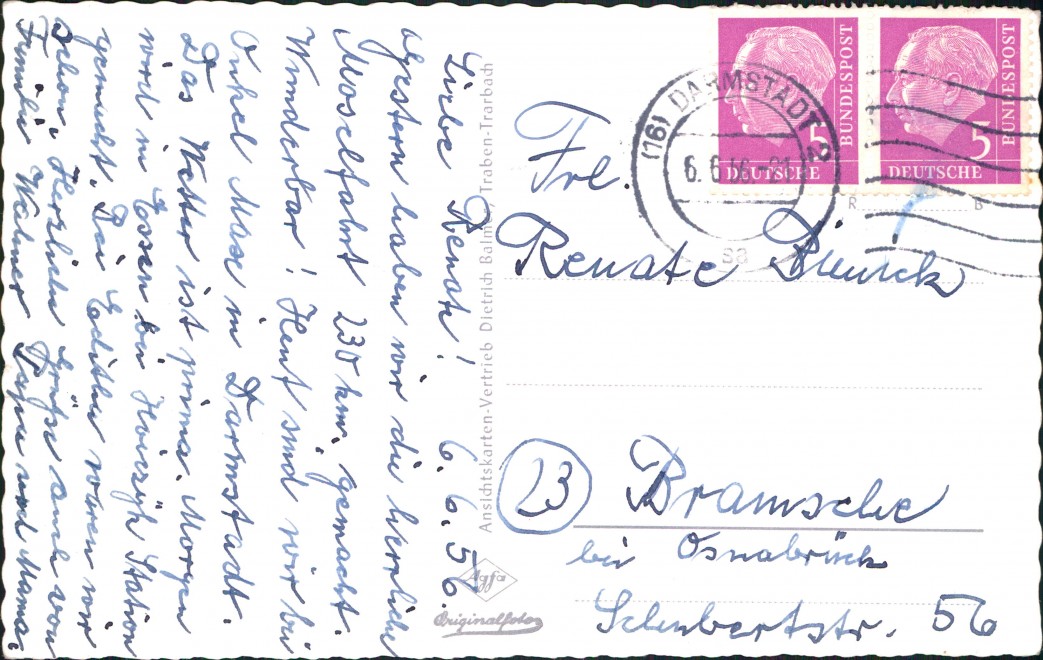 Liebe Renate! 6.6.56.
Gestern haben wir die herrliche
Moselfahrt 230 km. gemacht.
Wunderbar! Heut sind wir bei
Onkel Mase in Darmstadt.
Das Wetter ist prima. Morgen
wird in Essen bei Station
gemacht. Bei Edith waren wir
schon. Herzliche Grüße auch von
Familie Papa und Mama.
Ansichtskarten-Vertrieb Dietrich Balmes, Traben-Trarbach
Agfa
Originalfoto
DEUTSCHE BUNDESPOST 5
DEUTSCHE BUNDESPOST 5
(16) DARMSTADT 2
6.6.56.-21
sa
R B
Frl.
Renate
23 Bramsche
bei Osnabrück
Schubertstr. 56